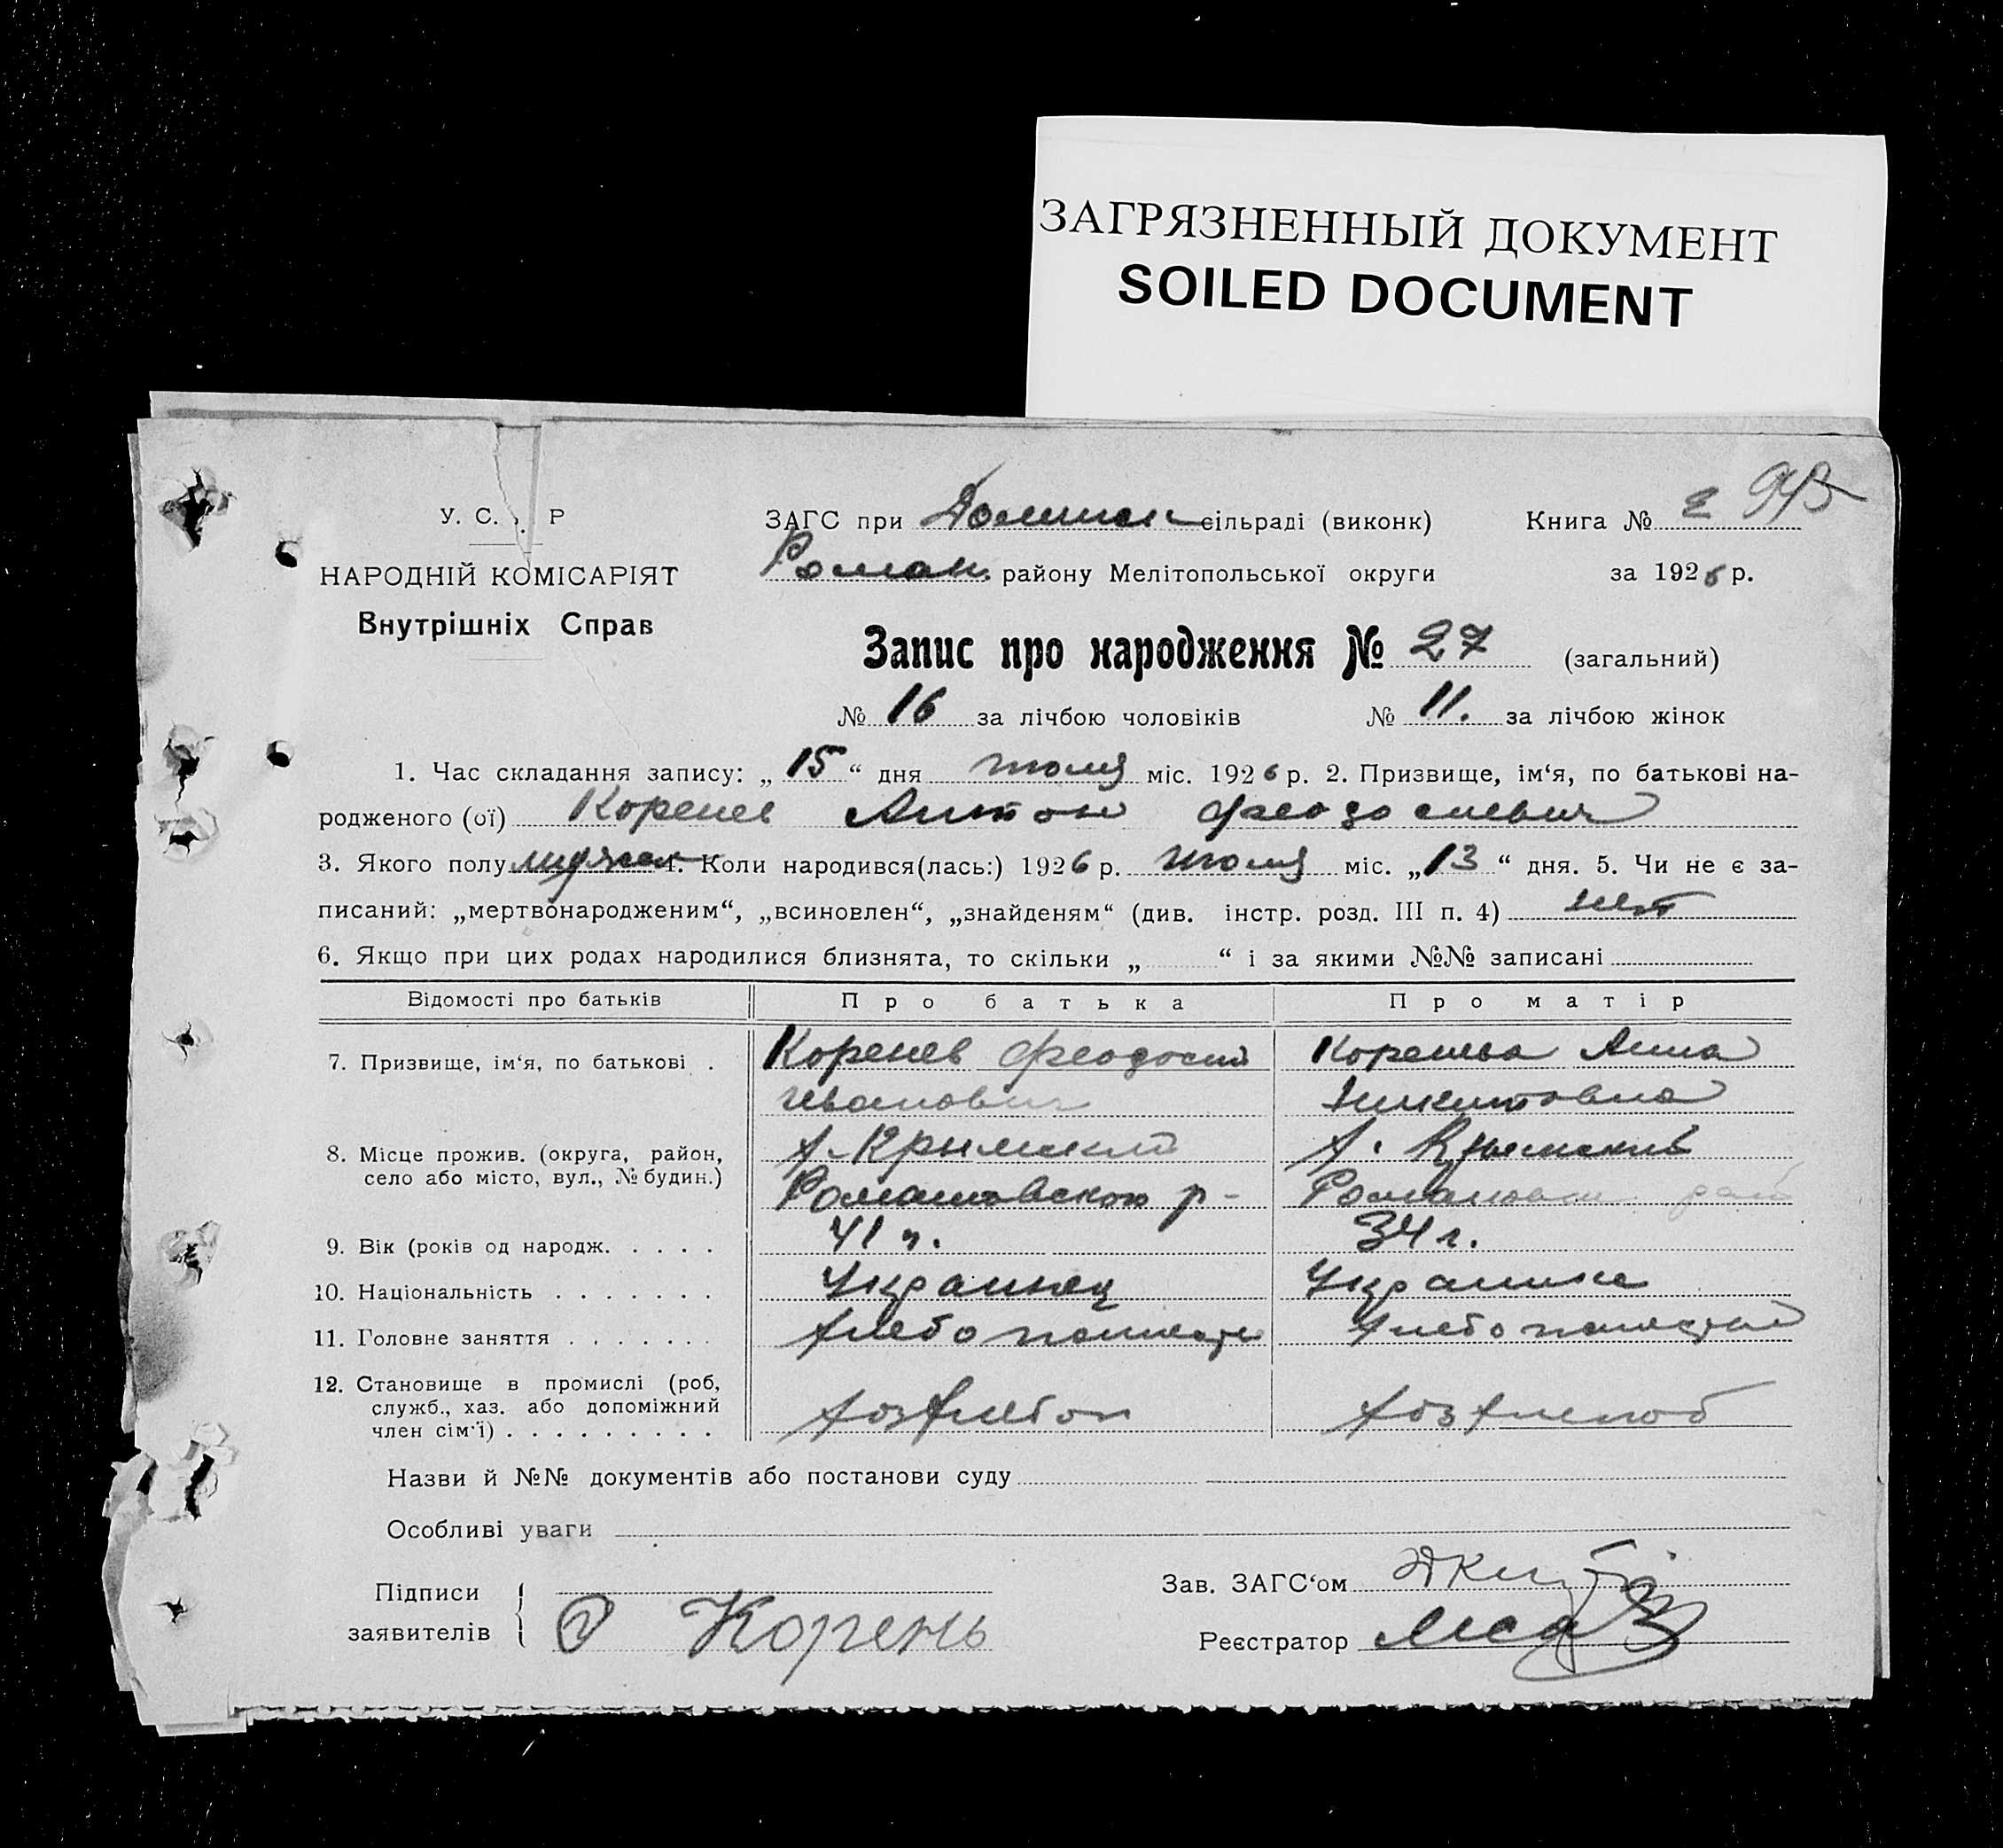 ЗАГРЯЗНЕННЫЙ ДОКУМЕНТ
SOILED DOCUMENT
У. С. Р
ЗАГС при сільраді (виконк) Книга №
НАРОДНІЙ КОМІСАРІЯТ
Роман. району Мелітопольської округи за 1926 р.
Внутрішніх Справ
Запис про народження № 27 (загальний)
№ 16 за лічбою чоловіків № 11. за лічбою жінок
1. Час складання запису: „15“ дня июля міс. 1926 р. 2. Призвище, ім‘я, по батькові на-
родженого (ої) Коренев Антон Феодосиевич
3. Якого полу мужск 4. Коли народився(лась:) 1926 р. июля міс. „13“ дня. 5. Чи не є за-
писаний: „мертвонародженим“, „всиновлен“, „знайденям“ (див. інстр. розд. III п. 4) нет
6. Якщо при цих родах народилися близнята, то скільки „ “ і за якими №№ записані
Відомості про батьків Про батька Про матір
7. Призвище, ім‘я, по батькові . Коренев Феодосий Коренева Анна
Иванович Никитовна
8. Місце прожив. (округа, район, х. Крымский х. Крымский
село або місто, вул., № будин.) Романовского р- Романовск рай
9. Вік (років од народж. . . . . 41 г. 34 г.
10. Національність . . . . . . . Украинец Украинка
11. Головне заняття . . . . . . . Хлебопашец Хлебопашец
12. Становище в промислі (роб,
служб., хаз. або допоміжний
член сім‘ї) . . . . . . . . .
Назви й №№ документів або постанови суду
Особливі уваги
Підписи Зав. ЗАГС‘ом
заявителів Корень Реєстратор